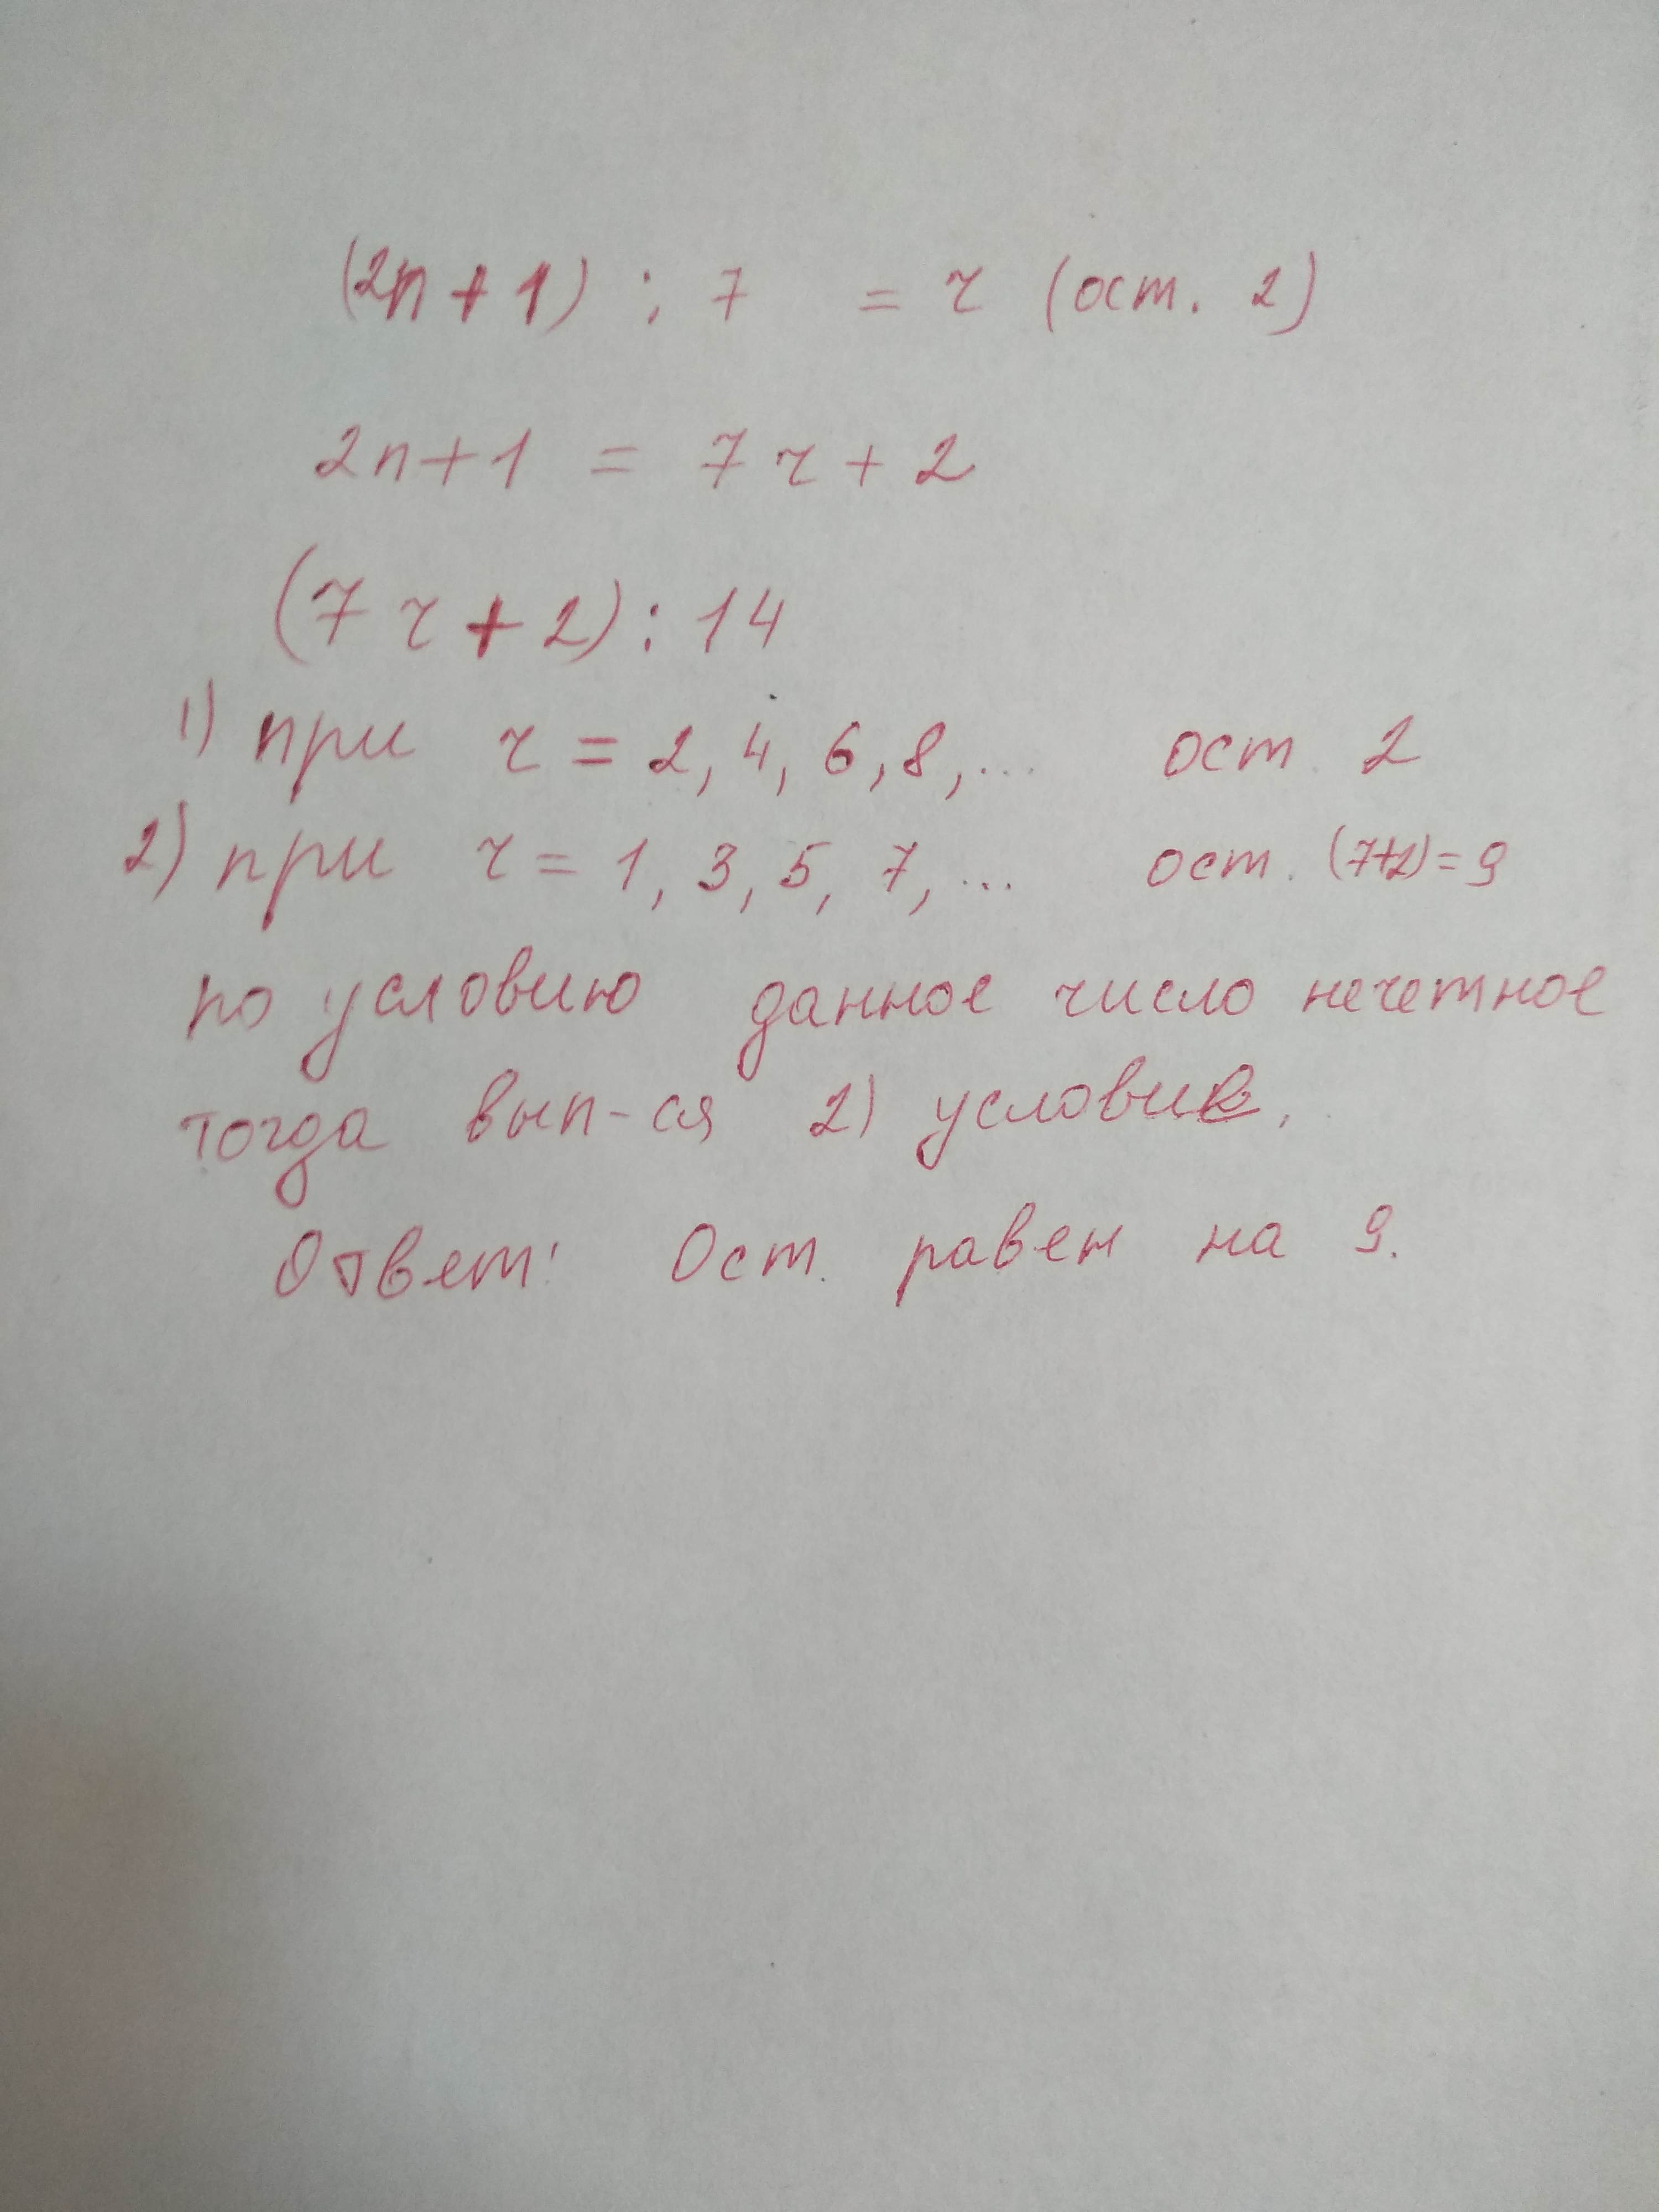 (2n+1) : 7 = r (ост. 2)
2n+1 = 7r+2
(7r+2):14
1) при r = 2, 4, 6, 8, ... ост. 2
2) при r = 1, 3, 5, 7, ... ост. (7+2)=9
по условию данное число нечетное
тогда вып-ся 2) условие.
Ответ: Ост. равен на 9.